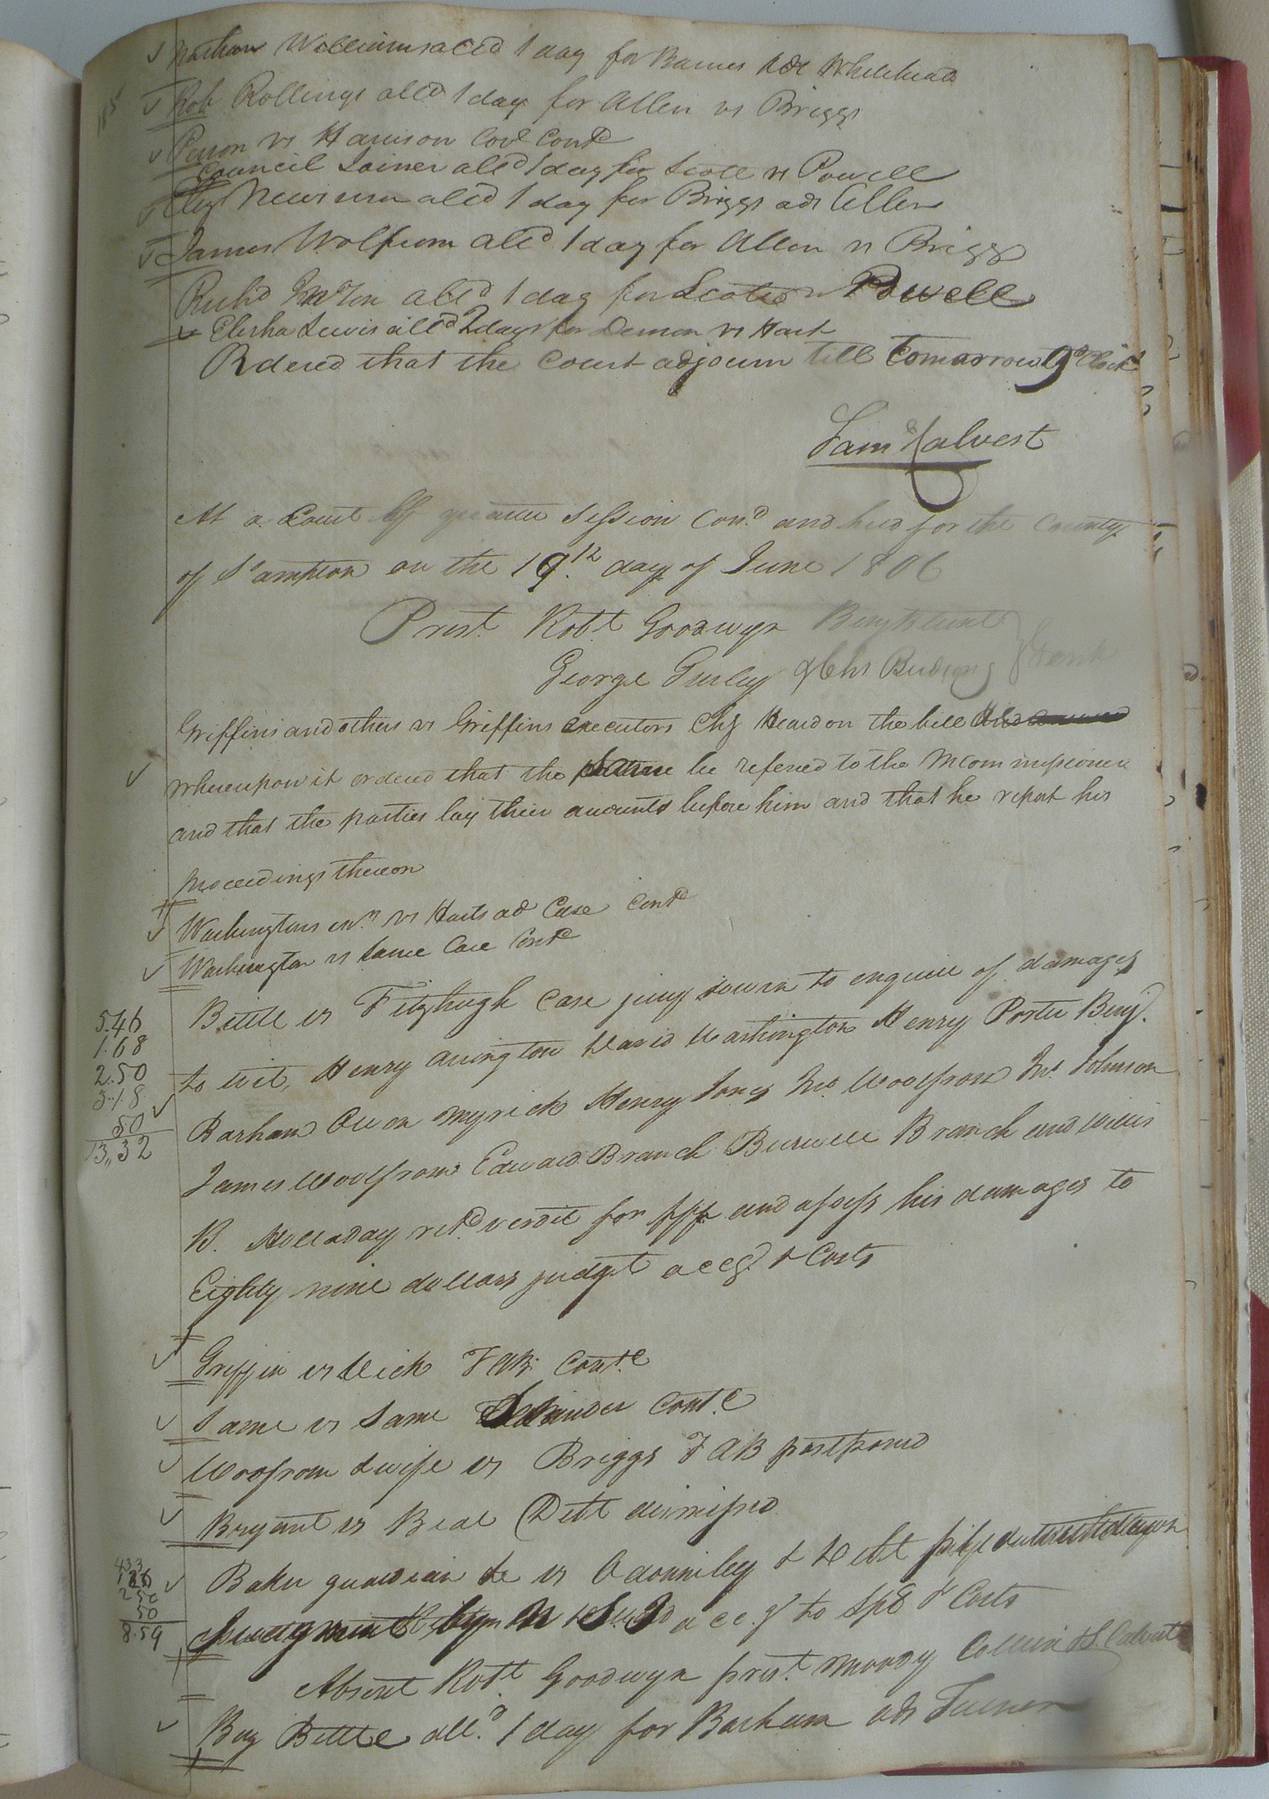 Nathan Williams alld 1 day for Barnes ads Whitehead
Rob Rollings alld 1 day for Allen vs Briggs
vs Harrison Cont.d
Council Joiner alld 1 day for Scott vs Powell
Newsum alld 1 day for Briggs ads Allen
James Wolfrom alld 1 day for Allen vs Briggs
Richd alld 1 day for Scott vs Powell
Elisha Lewis alld 2 days for Demon vs Hart
Ordered that the Court adjourn till Tomorrow 9 oClock
Saml Calvert
At a Court of quarter Session Con.d and held for the County
of S°ampton on the 19.th day of June 1806
Prest. Robt. Goodwyn Benj Blunt
George Gurley & Chs Gent
Griffins and others vs Griffins executors Chy Heard on the bill
whereupon it ordered that the Same be refered to the M Commissioner
and that the parties lay their accounts before him and that he report his
proceedings thereon
Washingtons vs Harts ad Case Contd
Washington vs Same Case Contd
Bittle vs Fitzhugh Case jury sworn to enquire of damages
5.46
1.68
2.50
3.18
50
13,,32
to wit, Henry Arington David Washington Henry Porter Benj.
Barham Owen Myrick Henry Jones Jno. Woolfrom Jno. Johnson
James Woolfrom Edward Branch Burwell Branch and Willis
B. Holladay retd verdit for plff and assess his damages to
Eighty nine dollars judgt accg. & Costs
Griffin vs Vick TAB Cont.d
Same vs Same Slander Cont.d
Woofrom & wife vs Briggs TAB postponed
Bryant vs Beal Debt dismissed
Baker guardian &c vs & Debt
250
50
8.59
acc.g to Spe & Costs
Absent Robt. Goodwyn prest. Moody & S. Calvert
Bittle all.d 1 day for Barham ads Turner